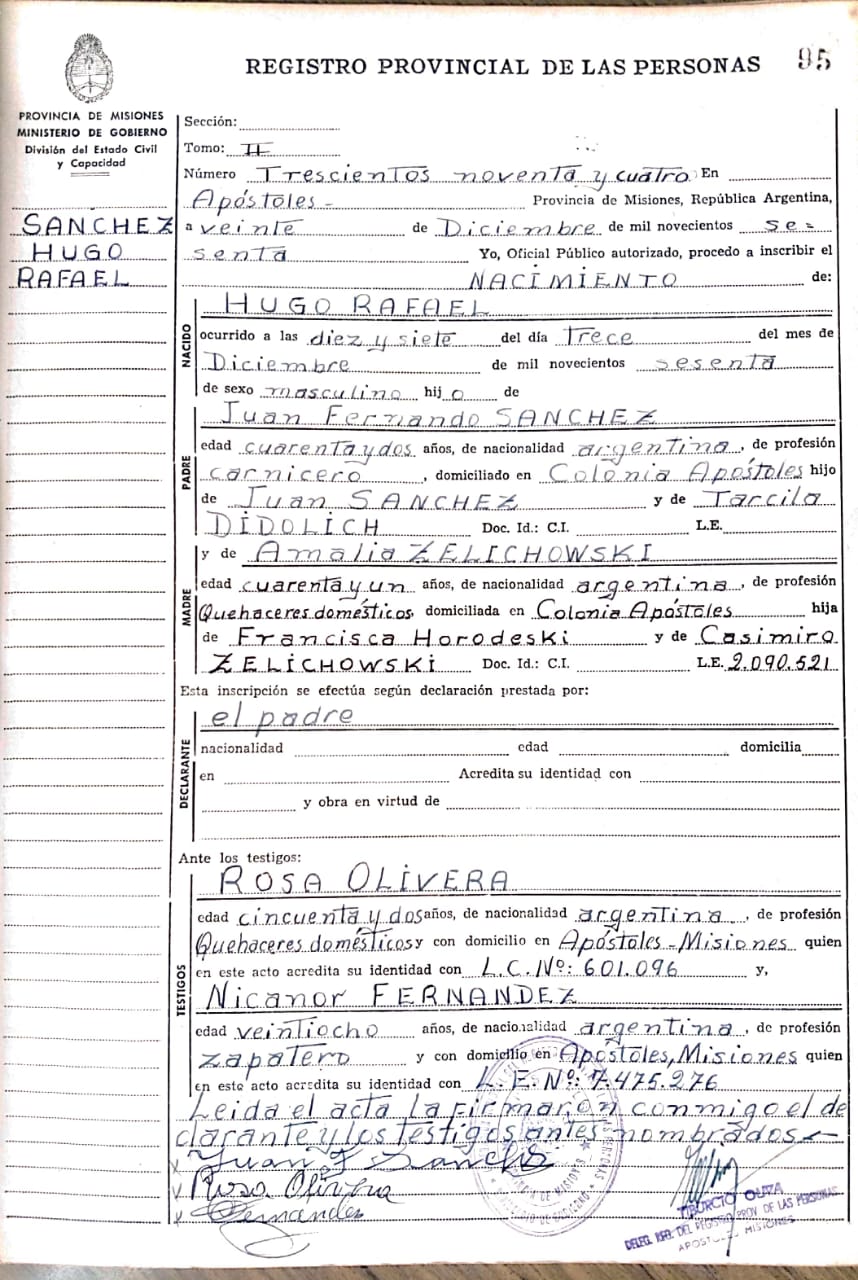 REGISTRO PROVINCIAL DE LAS PERSONAS 95
PROVINCIA DE MISIONES
MINISTERIO DE GOBIERNO
División del Estado Civil
y Capacidad
SANCHEZ
HUGO
RAFAEL
Sección:
Tomo: II
Número Trescientos noventa y cuatro En
Apóstoles - Provincia de Misiones, República Argentina,
a veinte de Diciembre de mil novecientos se=
senta Yo, Oficial Público autorizado, procedo a inscribir el
NACIMIENTO de:
NACIDO
HUGO RAFAEL
ocurrido a las diez y siete del día Trece del mes de
Diciembre de mil novecientos sesenta
de sexo masculino hijo de
PADRE
Juan Fernando SANCHEZ
edad cuarenta y dos años, de nacionalidad argentina, de profesión
carnicero, domiciliado en Colonia Apóstoles hijo
de Juan SANCHEZ y de Tarcila
DIDOLICH Doc. Id.: C.I. L.E.
MADRE
y de Amalia ZELICHOWSKI
edad cuarenta y un años, de nacionalidad argentina, de profesión
Quehaceres domésticos, domiciliada en Colonia Apóstoles hija
de Francisca Horodeski y de Casimiro
ZELICHOWSKI Doc. Id.: C.I. L.E. 2.090.521
Esta inscripción se efectúa según declaración prestada por:
DECLARANTE
el padre
nacionalidad edad domicilia
en Acredita su identidad con
y obra en virtud de
Ante los testigos:
TESTIGOS
ROSA OLIVERA
edad cincuenta y dos años, de nacionalidad argentina, de profesión
Quehaceres domésticos y con domicilio en Apóstoles - Misiones quien
en este acto acredita su identidad con L.C. Nº: 601.096 y,
Nicanor FERNANDEZ
edad veintiocho años, de nacionalidad argentina, de profesión
zapatero y con domicilio en Apóstoles, Misiones quien
en este acto acredita su identidad con L.E. Nº: 7.475.276
Leida el acta la firmaron conmigo el de
clarante y los testigos antes nombrados.-
Juan F Sanchez
Rosa Olivera
Fernandez
TIBURCIO
DELEG. DEL REGISTRO PROV. DE LAS PERSONAS
APOSTOLES MISIONES